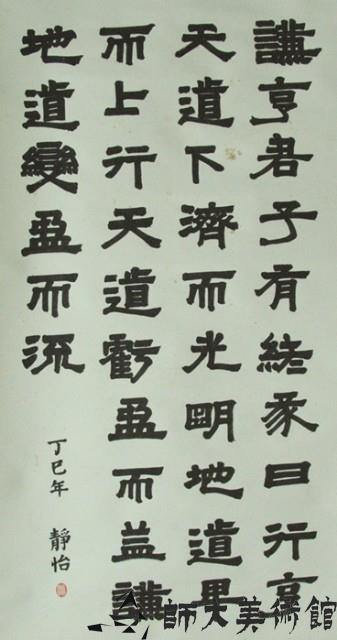 謙亨君子有終彖曰行亨
天道下濟而光明地道卑
而上行天道虧盈而益謙
地道變盈而流
丁巳年 靜怡
師大美術館